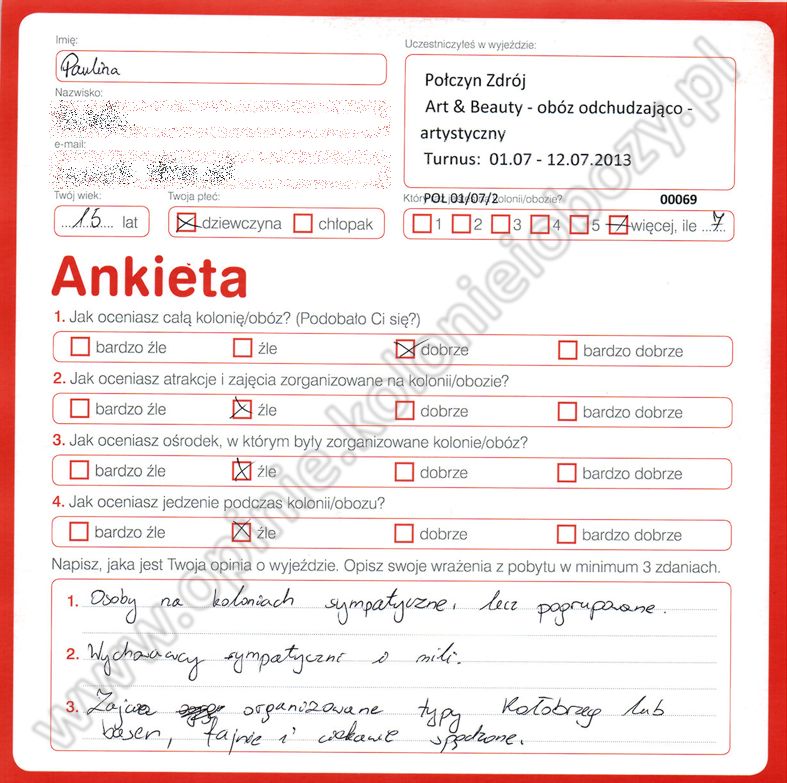 Imię:
Paulina
Uczestniczyłeś w wyjeździe:
Połczyn Zdrój
Art & Beauty - obóz odchudzająco -
artystyczny
Turnus: 01.07 - 12.07.2013
Nazwisko:
e-mail:
Twój wiek:
15 lat
Twoja płeć:
dziewczyna chłopak
POL 01/07/2 kolonii/obozie? 00069
1 2 3 4 5 więcej, ile 7
Ankieta
1. Jak oceniasz całą kolonię/obóz? (Podobało Ci się?)
bardzo źle źle dobrze bardzo dobrze
2. Jak oceniasz atrakcje i zajęcia zorganizowane na kolonii/obozie?
bardzo źle źle dobrze bardzo dobrze
3. Jak oceniasz ośrodek, w którym były zorganizowane kolonie/obóz?
bardzo źle źle dobrze bardzo dobrze
4. Jak oceniasz jedzenie podczas kolonii/obozu?
bardzo źle źle dobrze bardzo dobrze
Napisz, jaka jest Twoja opinia o wyjeździe. Opisz swoje wrażenia z pobytu w minimum 3 zdaniach.
1. Osoby na koloniach sympatyczne, lecz pogrupowane.
2. Wychowawcy sympatyczni i mili.
3. organizowane typu Kołobrzeg lub
basen, fajnie i ciekawie spędzone.
www.opinie.kolonieiobozy.pl